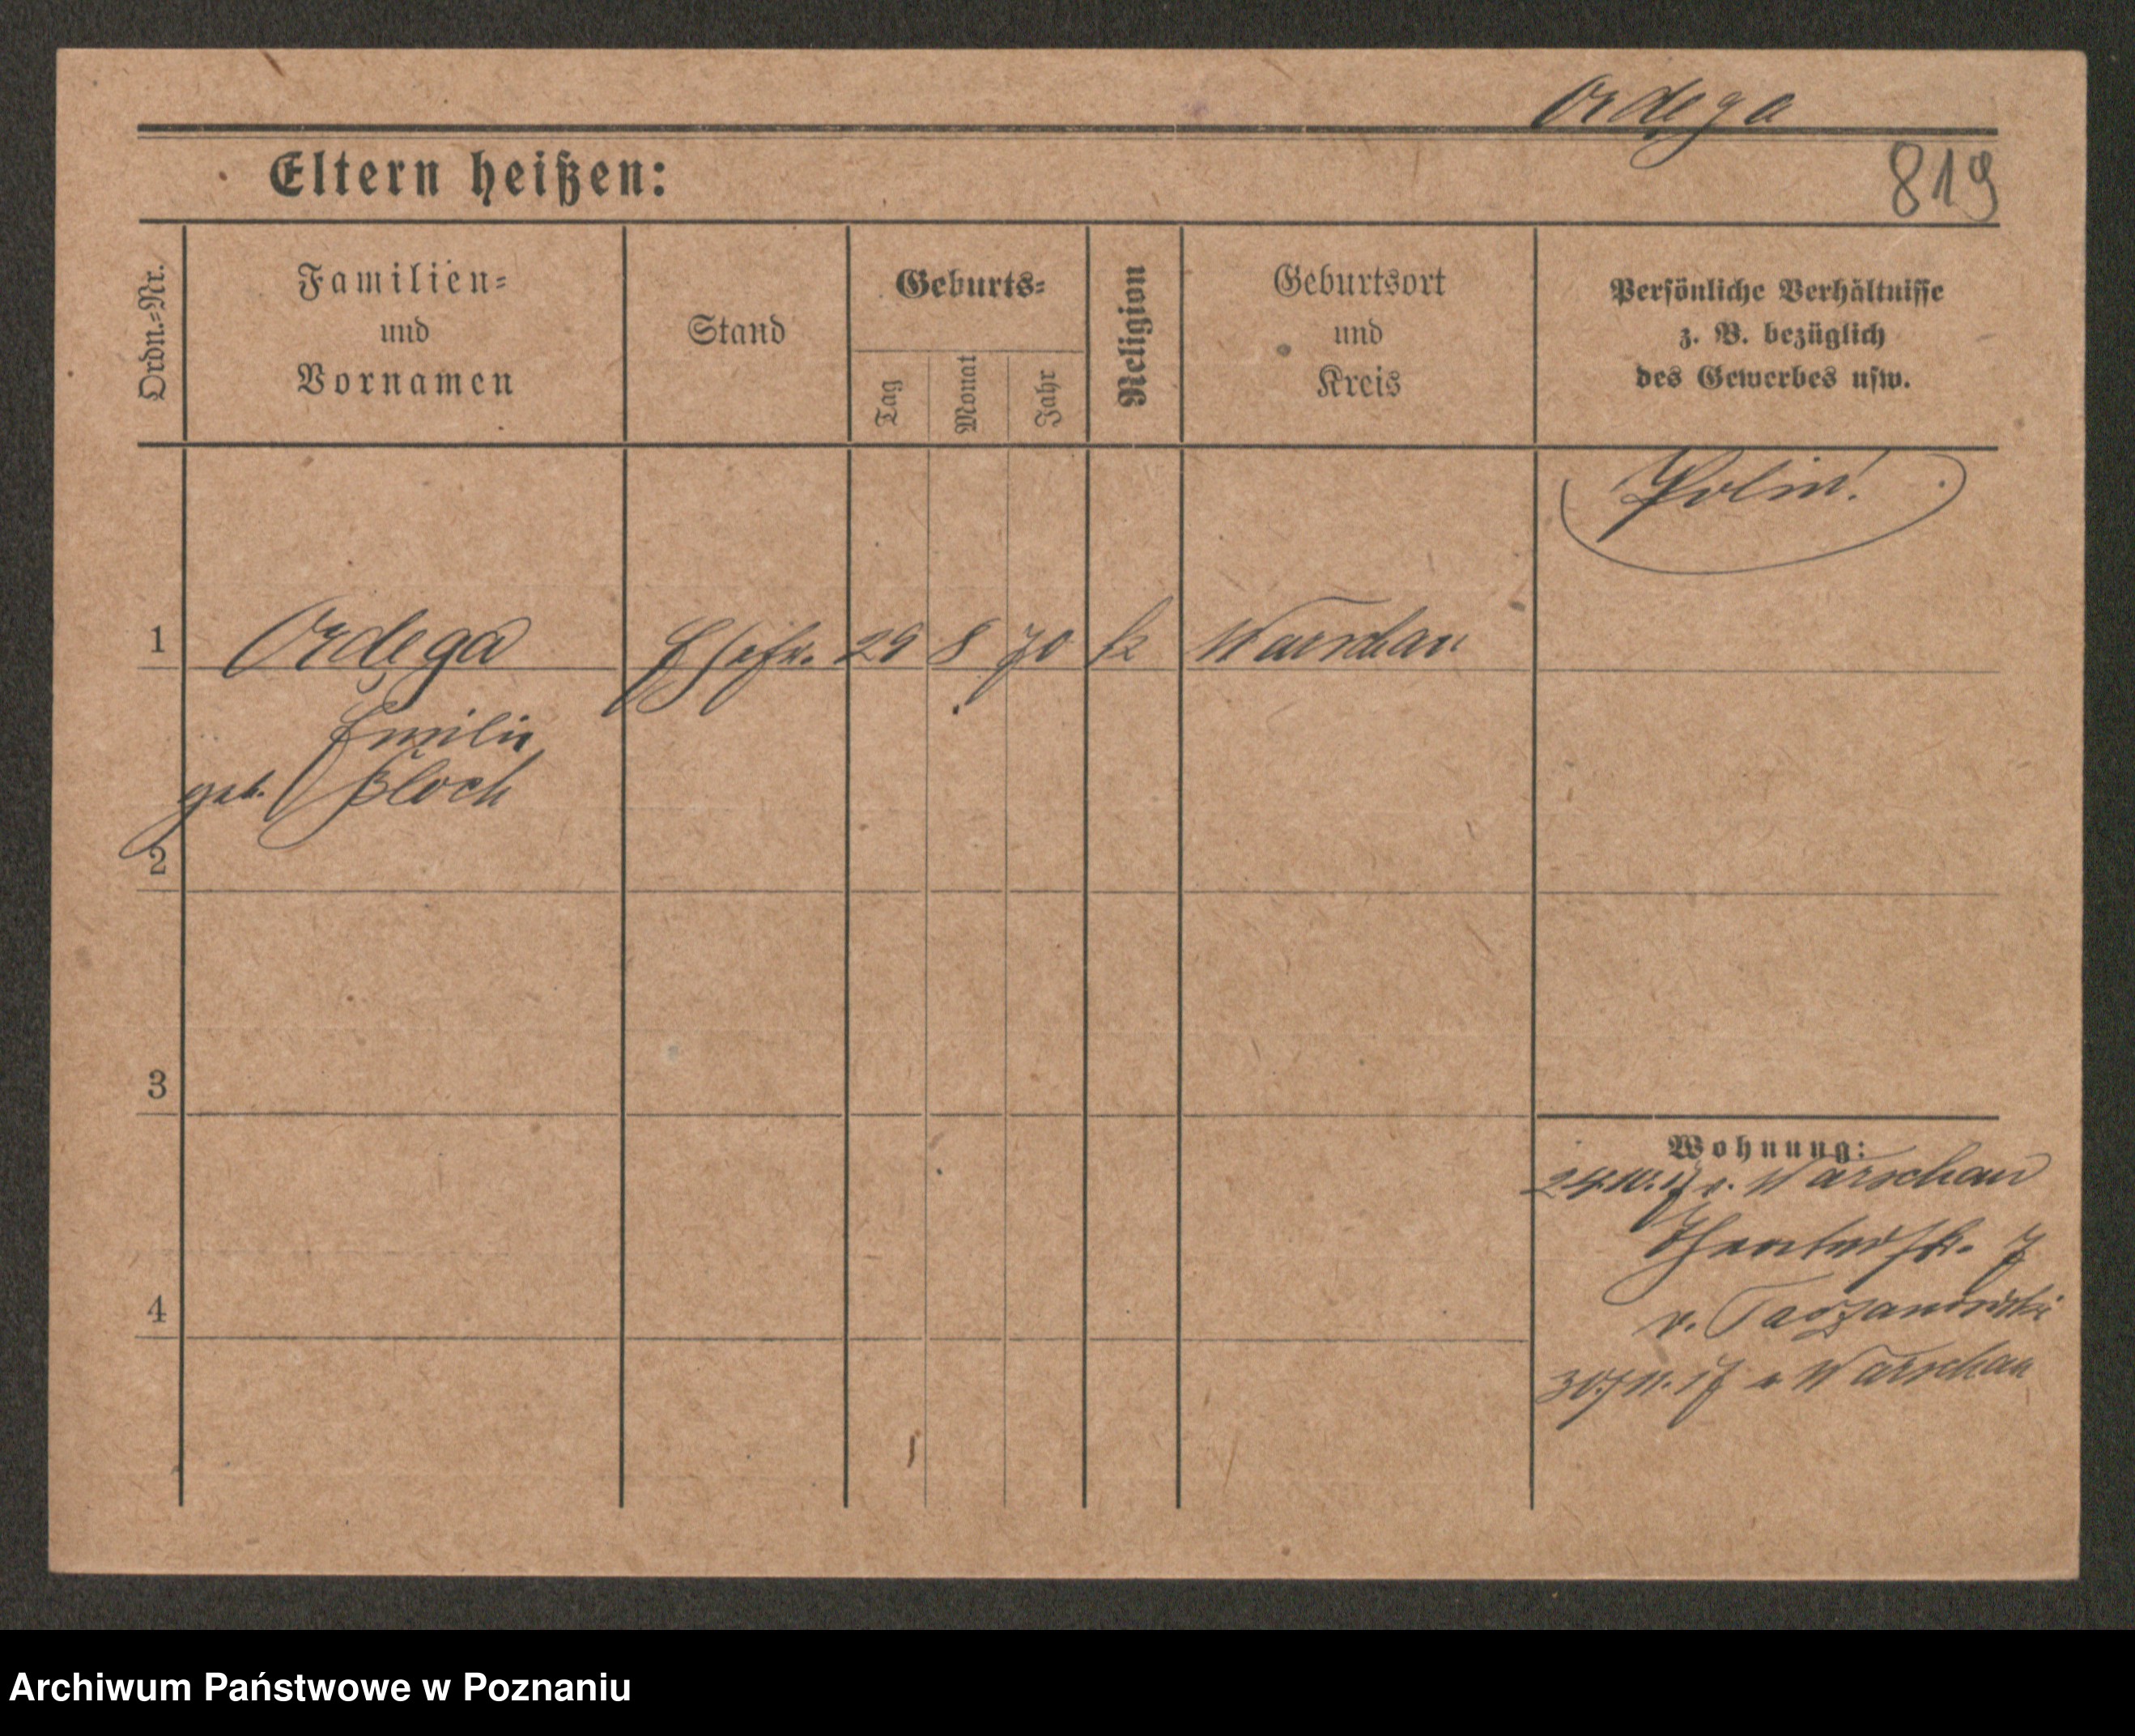 Ordega
Eltern heißen:
819
Ordn.=Nr.
Familien=
und
Vornamen
Stand
Geburts=
Tag
Monat
Jahr
Religion
Geburtsort
und
Kreis
Persönliche Verhältnisse
z. B. bezüglich
des Gewerbes usw.
Polin!
1
Ordega
Ehefr.
29
8
70
k
Warschau
Emilie
geb. Bloch
2
3
4
Wohnung:
24.10.17 v. Warschau
7
v.
30/11.17 n Warschau
Archiwum Państwowe w Poznaniu